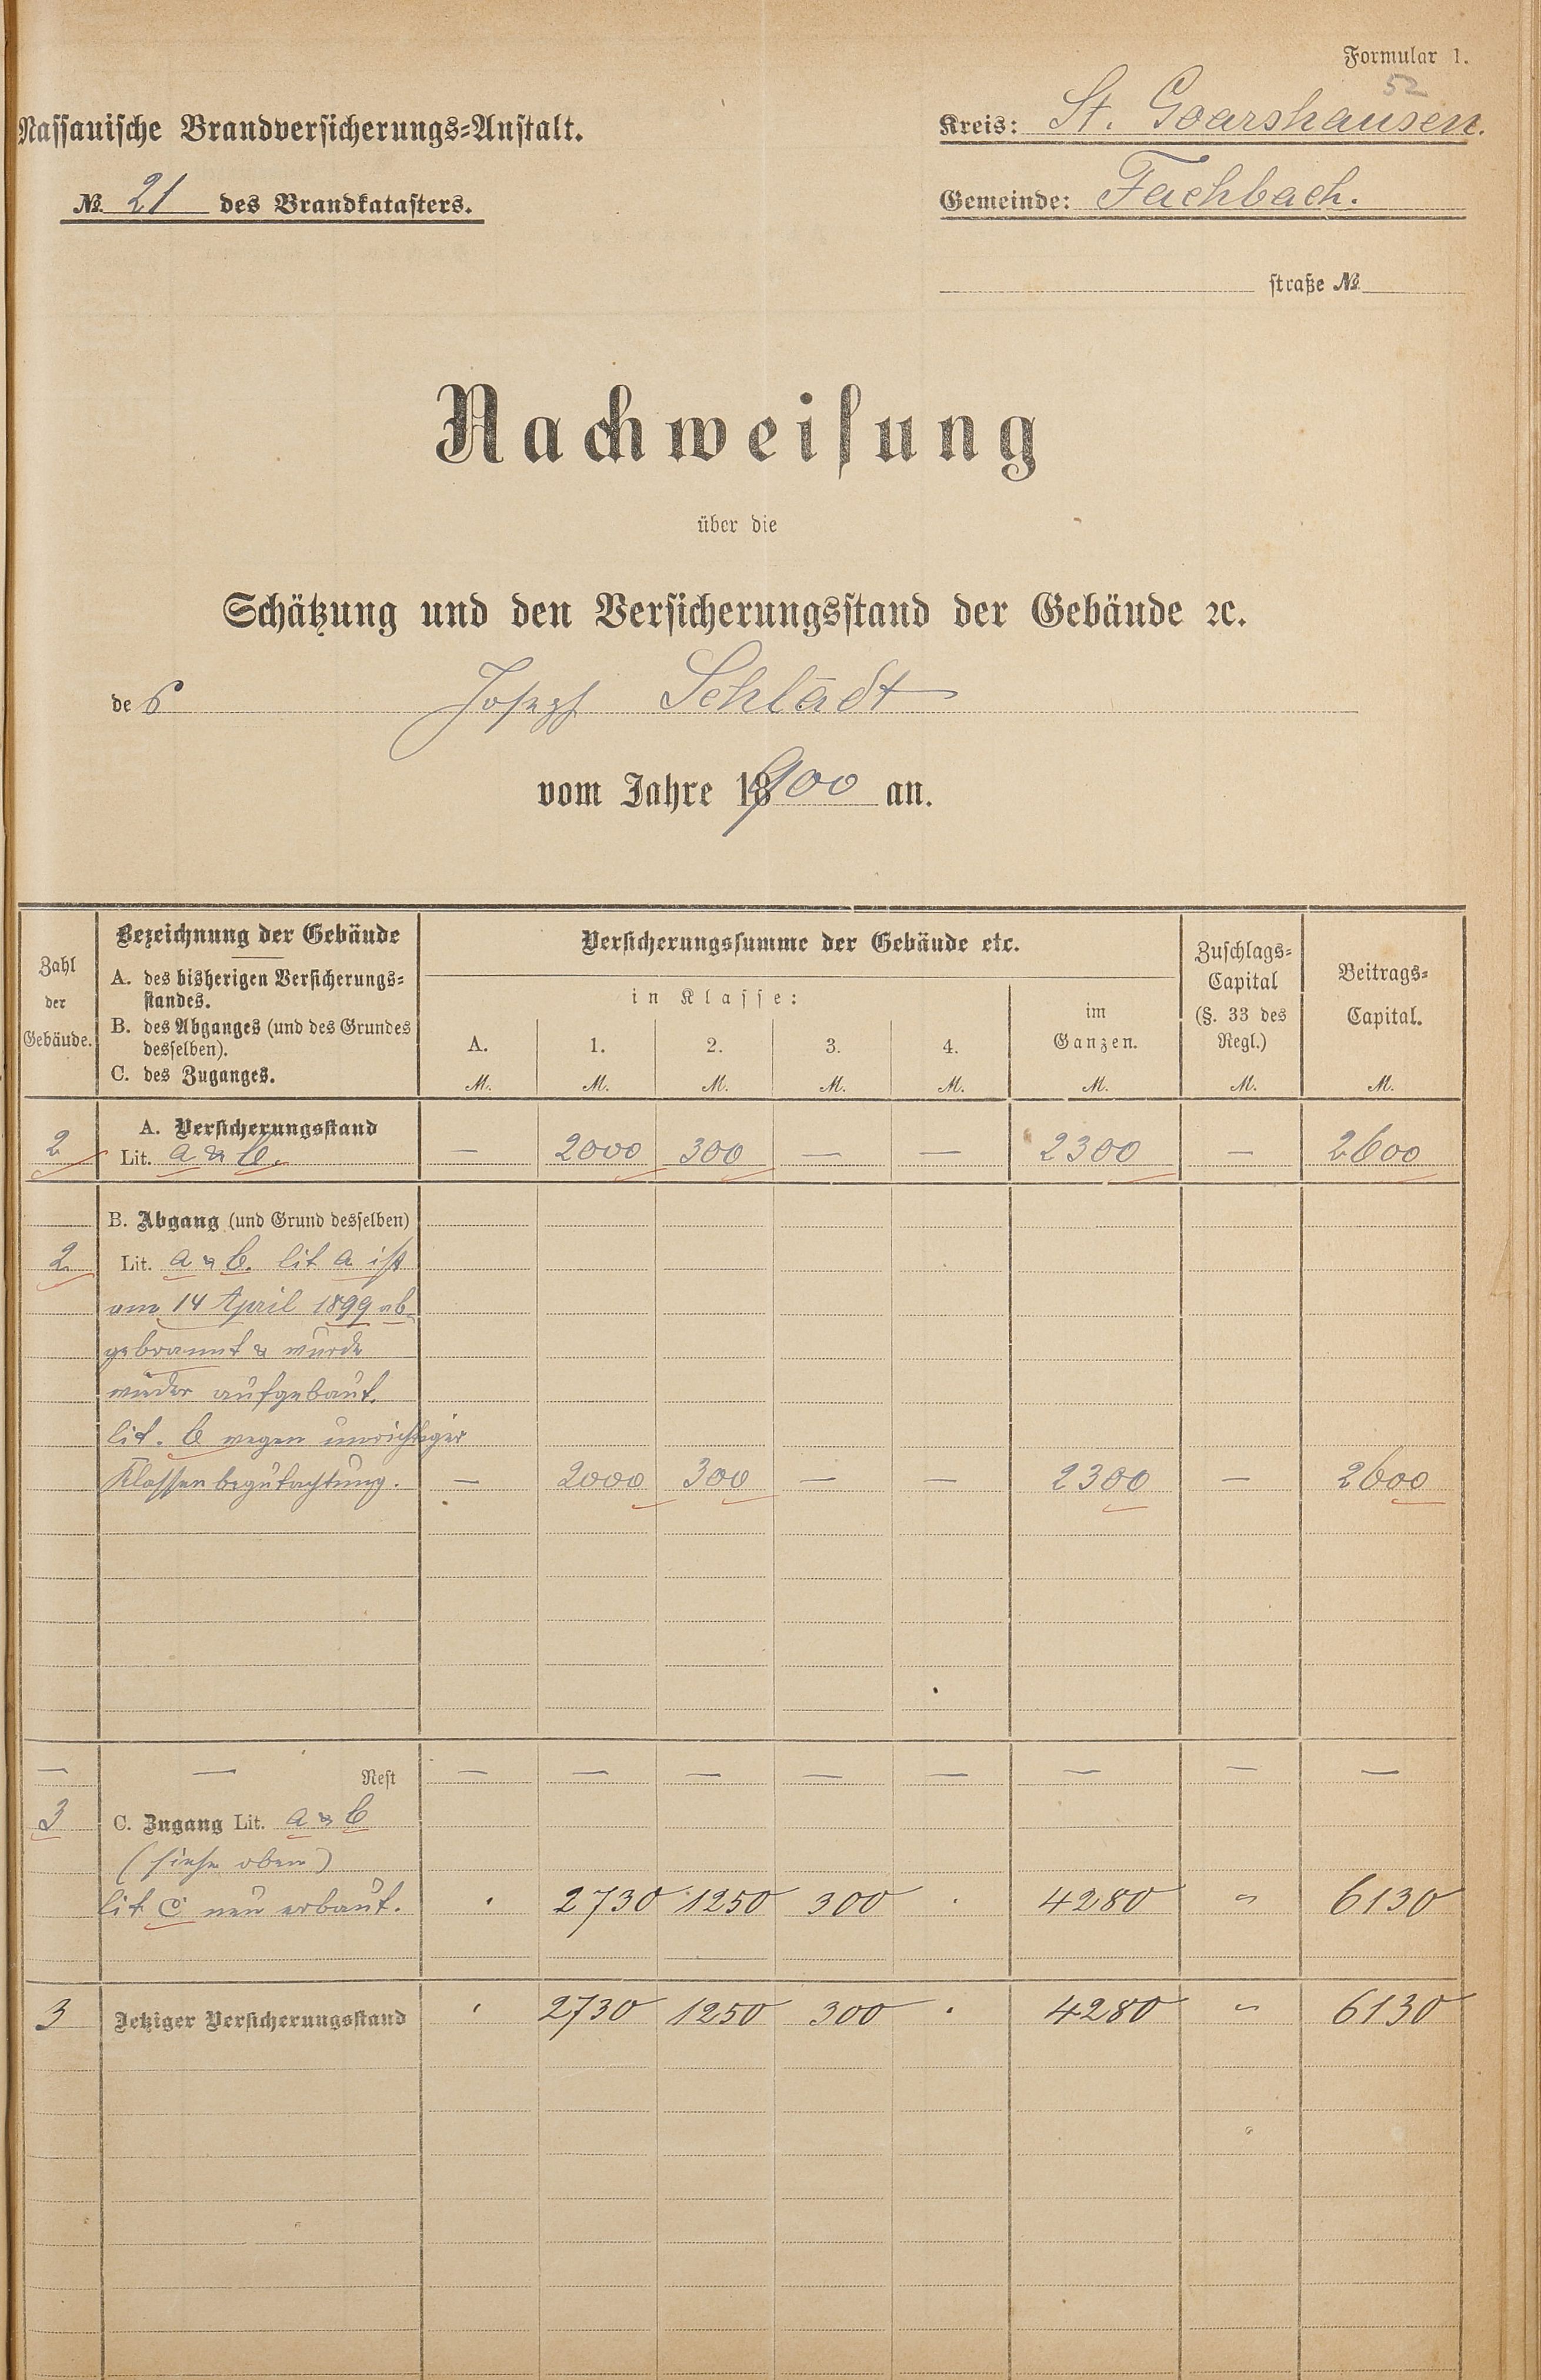 Formular 1.
52
Nassauische Brandversicherungs-Anstalt.
Kreis: St. Goarshausen.
№ 21 des Brandkatasters.
Gemeinde: Fachbach.
straße №
Nachweisung
über die
Schätzung und den Versicherungsstand der Gebäude ꝛc.
des Joseph Schladt
vom Jahre 18900 an.
Zahl der Gebäude.
Bezeichnung der Gebäude
A. des bisherigen Versicherungs-
standes.
B. des Abganges (und des Grundes
desselben).
C. des Zuganges.
Versicherungssumme der Gebäude etc.
in Klasse:
A. 1. 2. 3. 4.
im Ganzen.
Zuschlags-
Capital
(§. 33 des
Regl.)
Beitrags-
Capital.
M. M. M. M. M. M. M. M.
A. Versicherungsstand
2 Lit. a & b. — 2000 300 — — 2300 — 2600
B. Abgang (und Grund desselben)
2 Lit. a & b. lit a ist
am 14 April 1899 ab-
gebrannt & wurde
wieder aufgebaut.
lit. b wegen unrichtiger
Klassenbegutachtung. — 2000 300 — — 2300 — 2600
— — Rest — — — — — — — —
3 C. Zugang Lit. a & b
(siehe oben)
lit c neu erbaut. . 2730 1250 300 . 4280 " 6130
3 Jetziger Versicherungsstand . 2730 1250 300 . 4280 " 6130